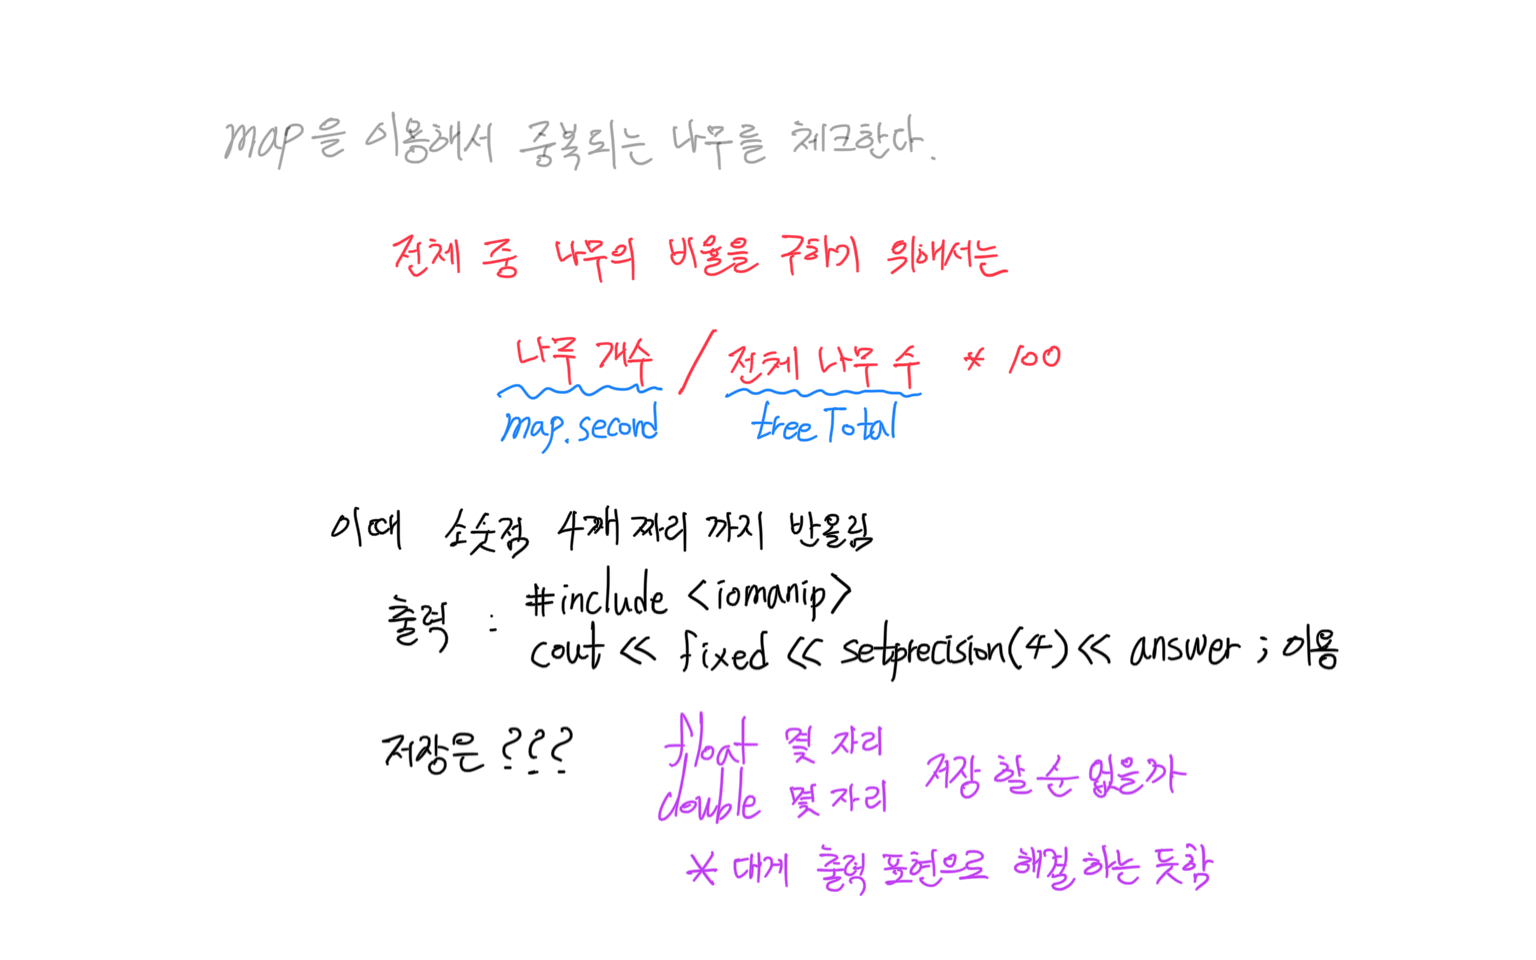 map을 이용해서 중복되는 나무를 체크한다.
전체 중 나무의 비율을 구하기 위해서는
나무 개수 / 전체 나무 수 * 100
map.second treeTotal
이때 소숫점 4째 짜리 까지 반올림
출력 : #include <iomanip>
cout << fixed << setprecision(4) << answer ; 이용
저장은 ??? float 몇 자리
double 몇 자리 저장 할 순 없을까
* 대게 출력 표현으로 해결 하는 듯함